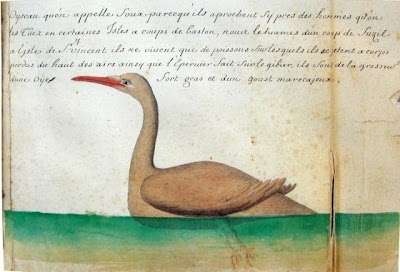 Oyseau quon appelle Foux. parcequ'ils aprochent sy pres des hommes qu'on
les Tuex en certaines Isles a coups de baston, nous le tuames dun coup de fuzil
a lisle de St Vincent ils ne vivent que de poissons sur lesquels ils se jettent a corps
perdus du haut des airs ainsy que l'Epervier fait sur le gibier, ils sont de la grosseur
dune Oÿe fort gras et dun goust marecajeux.